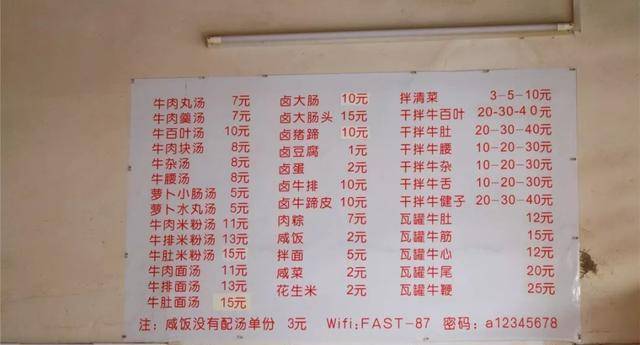 牛肉丸汤 7元
牛肉羹汤 7元
牛百叶汤 10元
牛肉块汤 8元
牛杂汤 8元
牛腰汤 8元
萝卜小肠汤 5元
萝卜水丸汤 5元
牛肉米粉汤 11元
牛排米粉汤 13元
牛肚米粉汤 15元
牛肉面汤 11元
牛排面汤 13元
牛肚面汤 15元
卤大肠 10元
卤大肠头 15元
卤猪蹄 10元
卤豆腐 1元
卤蛋 2元
卤牛排 10元
卤牛蹄皮 10元
肉粽 7元
咸饭 2元
拌面 5元
咸菜 2元
花生米 2元
拌清菜 3-5-10元
干拌牛百叶 20-30-40元
干拌牛肚 20-30-40元
干拌牛腰 10-20-30元
干拌牛杂 10-20-30元
干拌牛舌 10-20-30元
干拌牛健子 20-30-40元
瓦罐牛肚 12元
瓦罐牛筋 15元
瓦罐牛心 12元
瓦罐牛尾 20元
瓦罐牛鞭 25元
注：咸饭没有配汤单份 3元 Wifi:FAST-87 密码：a12345678